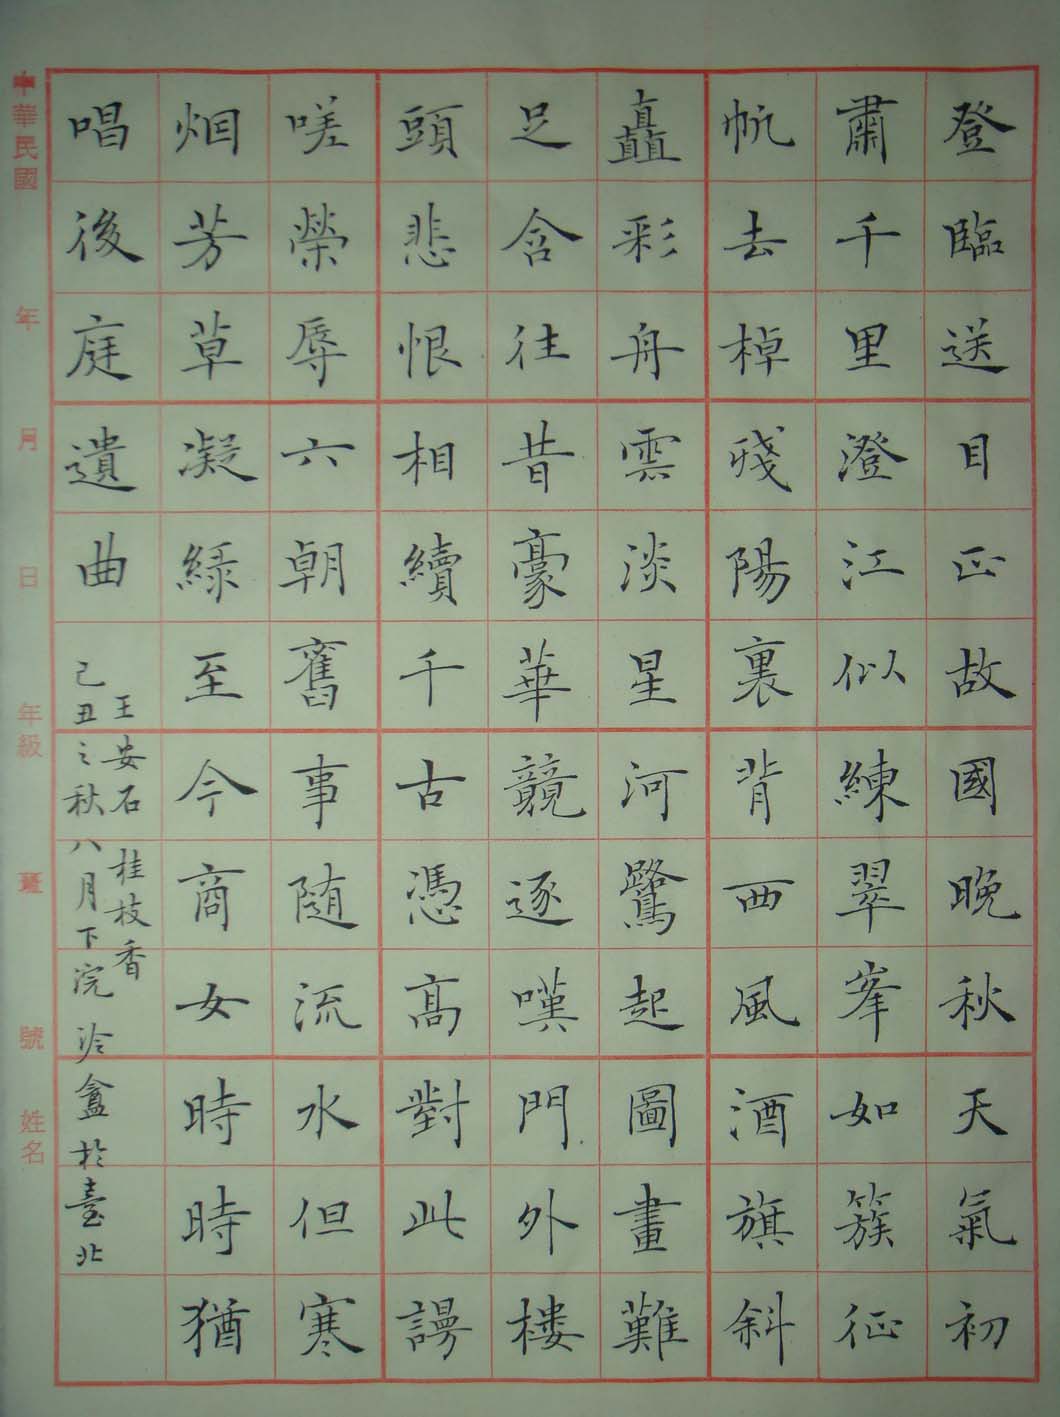 登臨送目正故國晚秋天氣初
肅千里澄江似練翠峯如簇征
帆去棹殘陽裏背西風酒旗斜
矗彩舟雲淡星河鷺起圖畫難
足含往昔豪華競逐嘆門外楼
頭悲恨相續千古憑高對此謾
嗟榮辱六朝舊事随流水但寒
烟芳草凝緑至今商女時時猶
唱後庭遺曲
王安石 桂枝香
己丑之秋八月下浣 泠盦於臺北
中華民國 年 月 日 年級 號 姓名